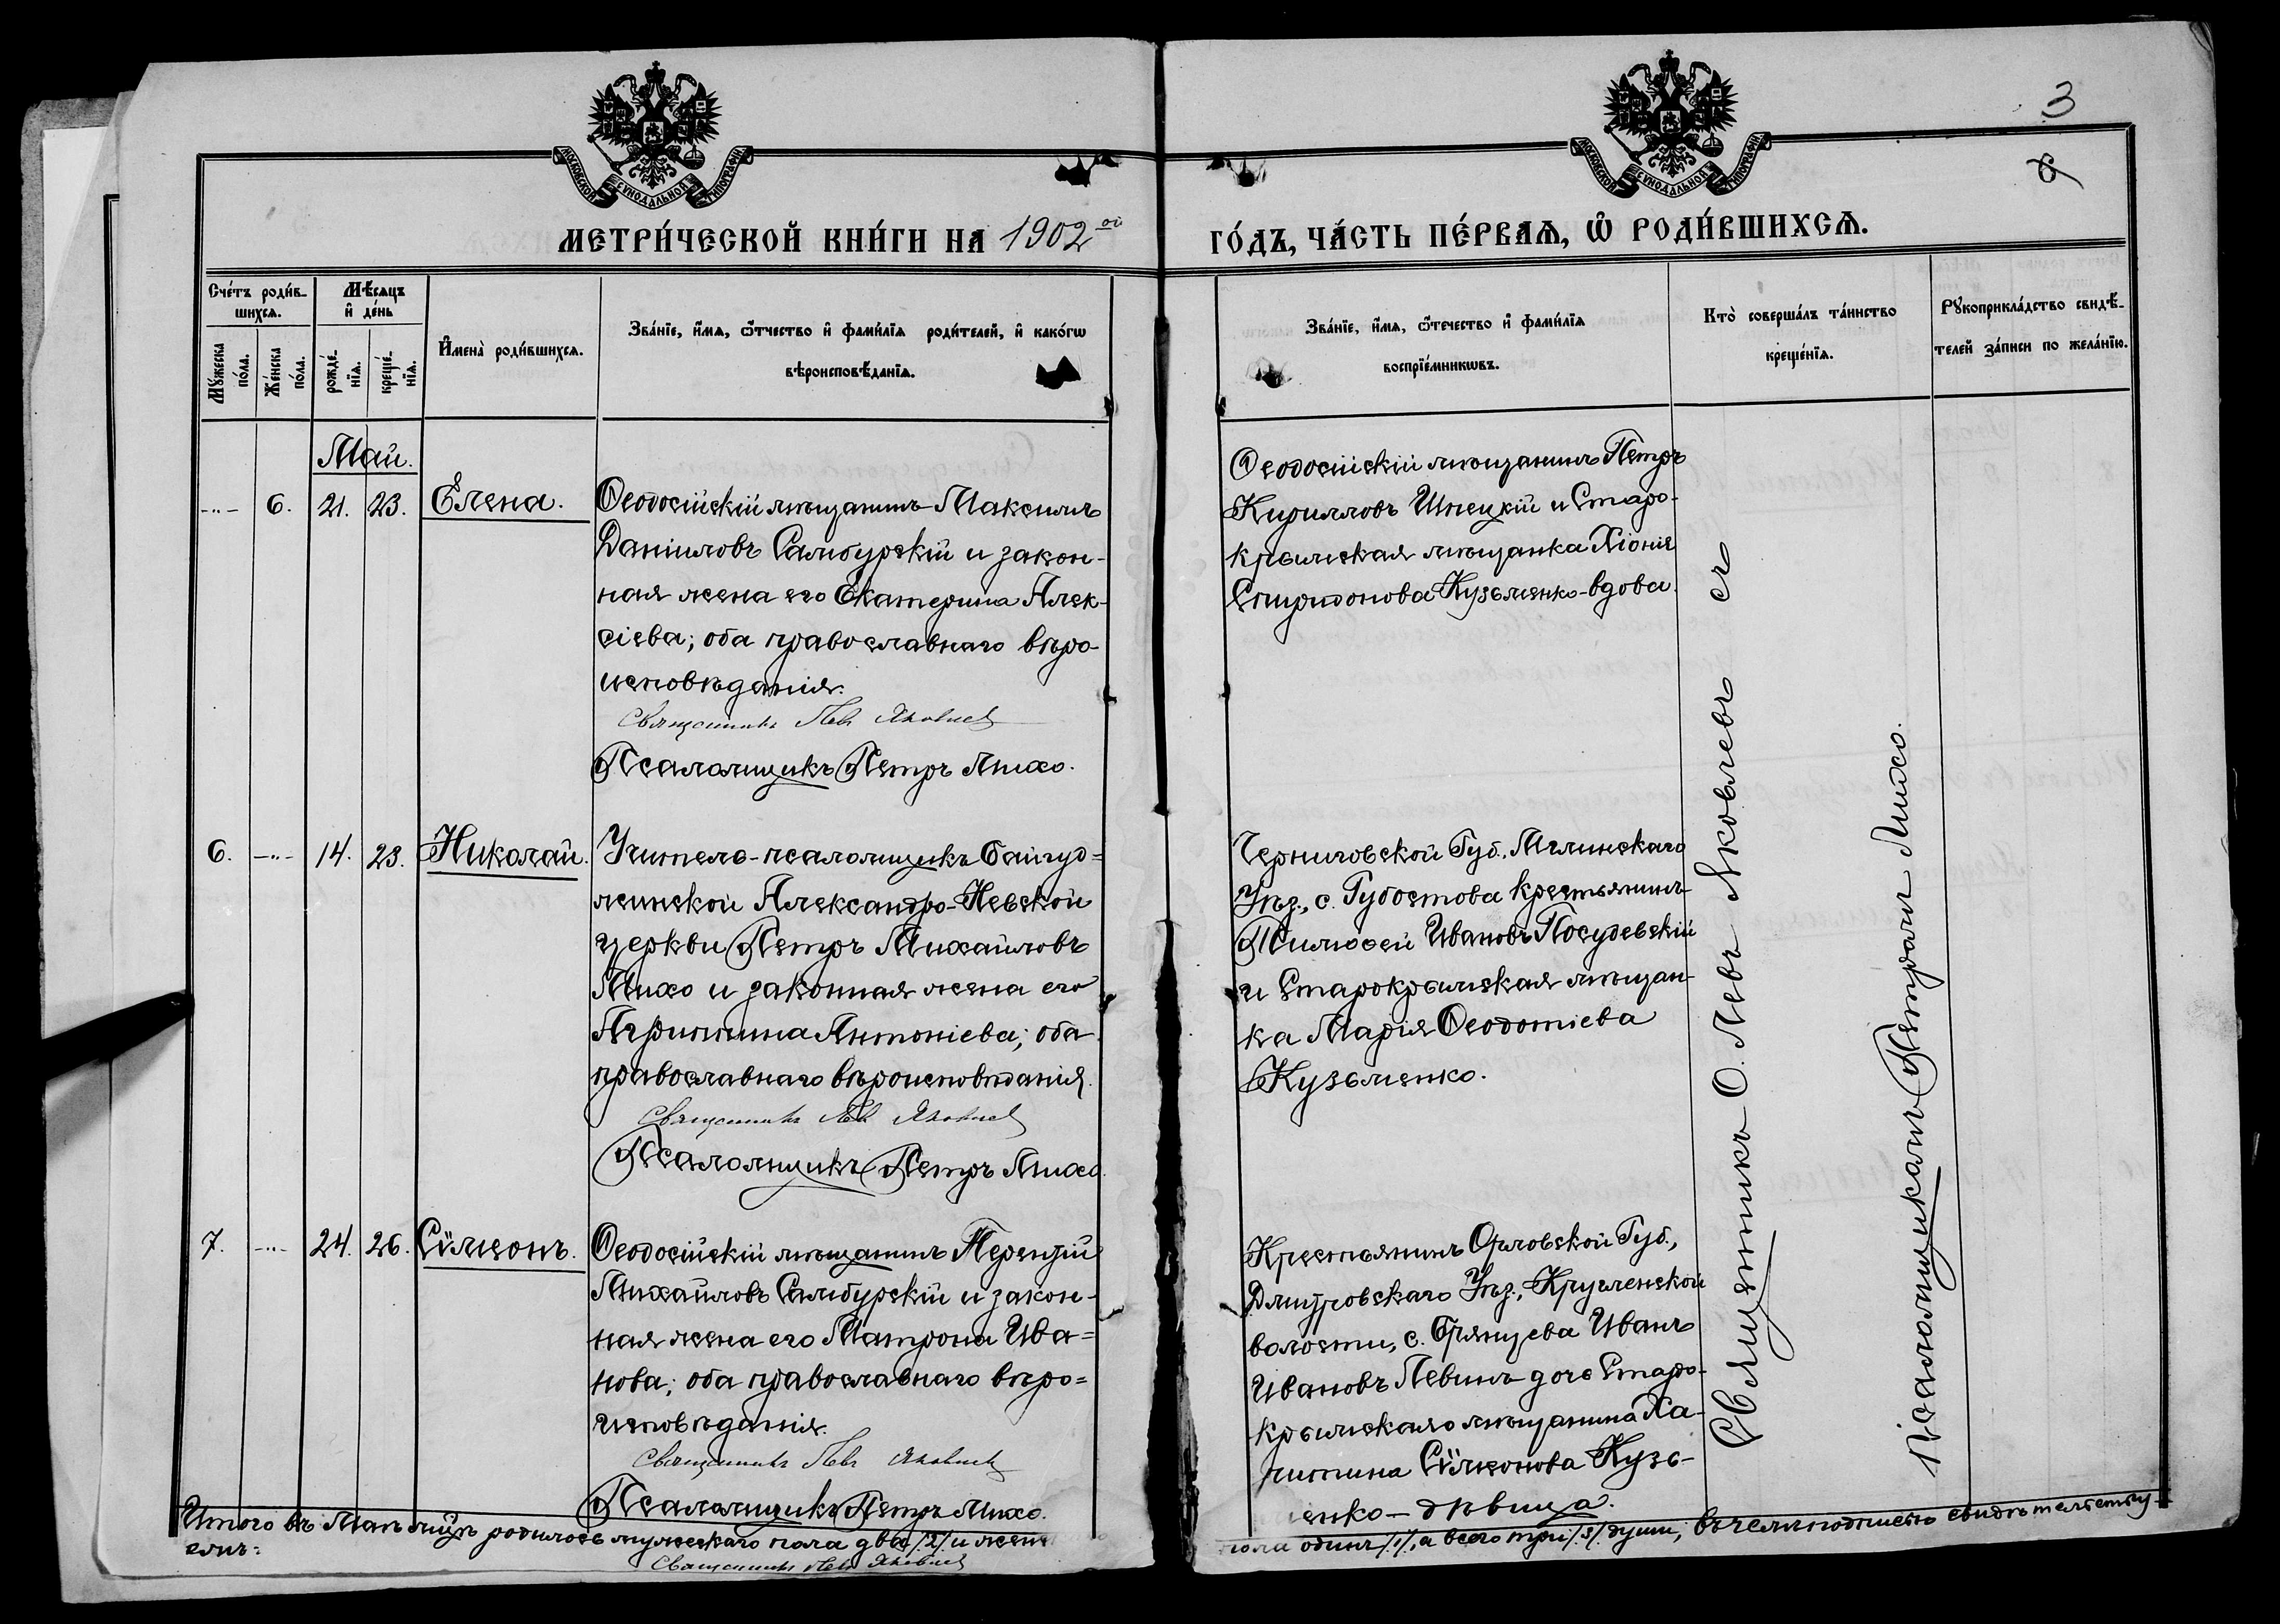 3
МОСКОВСКОЙ СѴНОДАЛЬНОЙ ТИПОГРАФІИ
МОСКОВСКОЙ СѴНОДАЛЬНОЙ ТИПОГРАФІИ
МЕТРИ́ЧЕСКОЙ КНИ́ГИ НА 1902ой ГО́ДЪ, ЧА́СТЬ ПЕ́РВАѦ, Ѡ РОДИ́ВШИХСѦ.
Сче́тъ роди́в-
шихсѧ.
Мꙋжеска по́ла.
Же́нска по́ла.
Мѣ́сѧцъ
и де́нь
рожде́-
нїѧ.
креще́-
нїѧ.
И҆мена̀ роди́вшихсѧ.
Зва́нїе, и҆́мѧ, ѻ҆́тчество и҆ фами́лїѧ роди́телей, и҆ како́гѡ
вѣроисповѣ́данїѧ.
Зва́нїе, и҆́мѧ, ѻ҆́течество и҆ фами́лїѧ
воспрїе́мникѡвъ.
Кто̀ соверша́лъ та́инство
креще́нїѧ.
Рꙋкоприкла́дство свидѣ́-
телей за́писи по жела́нїю.
Май.
-"- 6. 21. 23. Елена.
Ѳеодосійскій мѣщанинъ Максимъ
Даніиловъ Самбурскій и закон-
ная жена его Екатерина Алек-
сіева; оба православнаго вѣро-
исповѣданія.
Священникъ Левъ Яковлевъ
Псаломщикъ Петръ Михо.
Ѳеодосійскій мѣщанинъ Петръ
Кирилловъ Шпецкій и Старо-
крымская мѣщанка Хіонія
Спиридонова Кузьменко-вдова.
6. -"- 14. 23. Николай.
Учитель-псаломщикъ Байгуд-
ленской Александро-Невской
церкви Петръ Михайловъ
Михо и законная жена его
Агриппина Антоніева; оба
православнаго вѣроисповѣданія.
Священникъ Левъ Яковлевъ
Псаломщикъ Петръ Михо.
Черниговской Губ., Мглинскаго
Уѣз., с. Губостова крестьянинъ
Тимоѳей Ивановъ Посудевскій
и Старокрымская мѣщан-
ка Марія Ѳеодотіева
Кузьменко.
7. -"- 24. 26. Сѵмеонъ.
Ѳеодосійскій мѣщанинъ Терентій
Михайловъ Самбурскій и закон-
ная жена его Матрона Ива=
нова; оба православнаго вѣро=
исповѣданія.
Священникъ Левъ Яковлевъ
Псаломщикъ Петръ Михо.
Крестьянинъ Орловской Губ.,
Дмитровскаго Уѣз., Кругленской
волости, с. Брянцева Иванъ
Ивановъ Левинъ дочь Старо-
крымскаго мѣщанина Ха-
ритина Сѵмеонова Кузь-
менко - дѣвица.
Священникъ О. Левъ Яковлевъ съ
Псаломщикомъ Петромъ Михо.
Итого въ Маѣ мцѣ родилось мужескаго пола два /2/ и женск
пола одинъ /1/, а всего три /3/ души; въ чемъ подписью свидѣтельству-
емъ:
Священникъ Левъ Яковлевъ